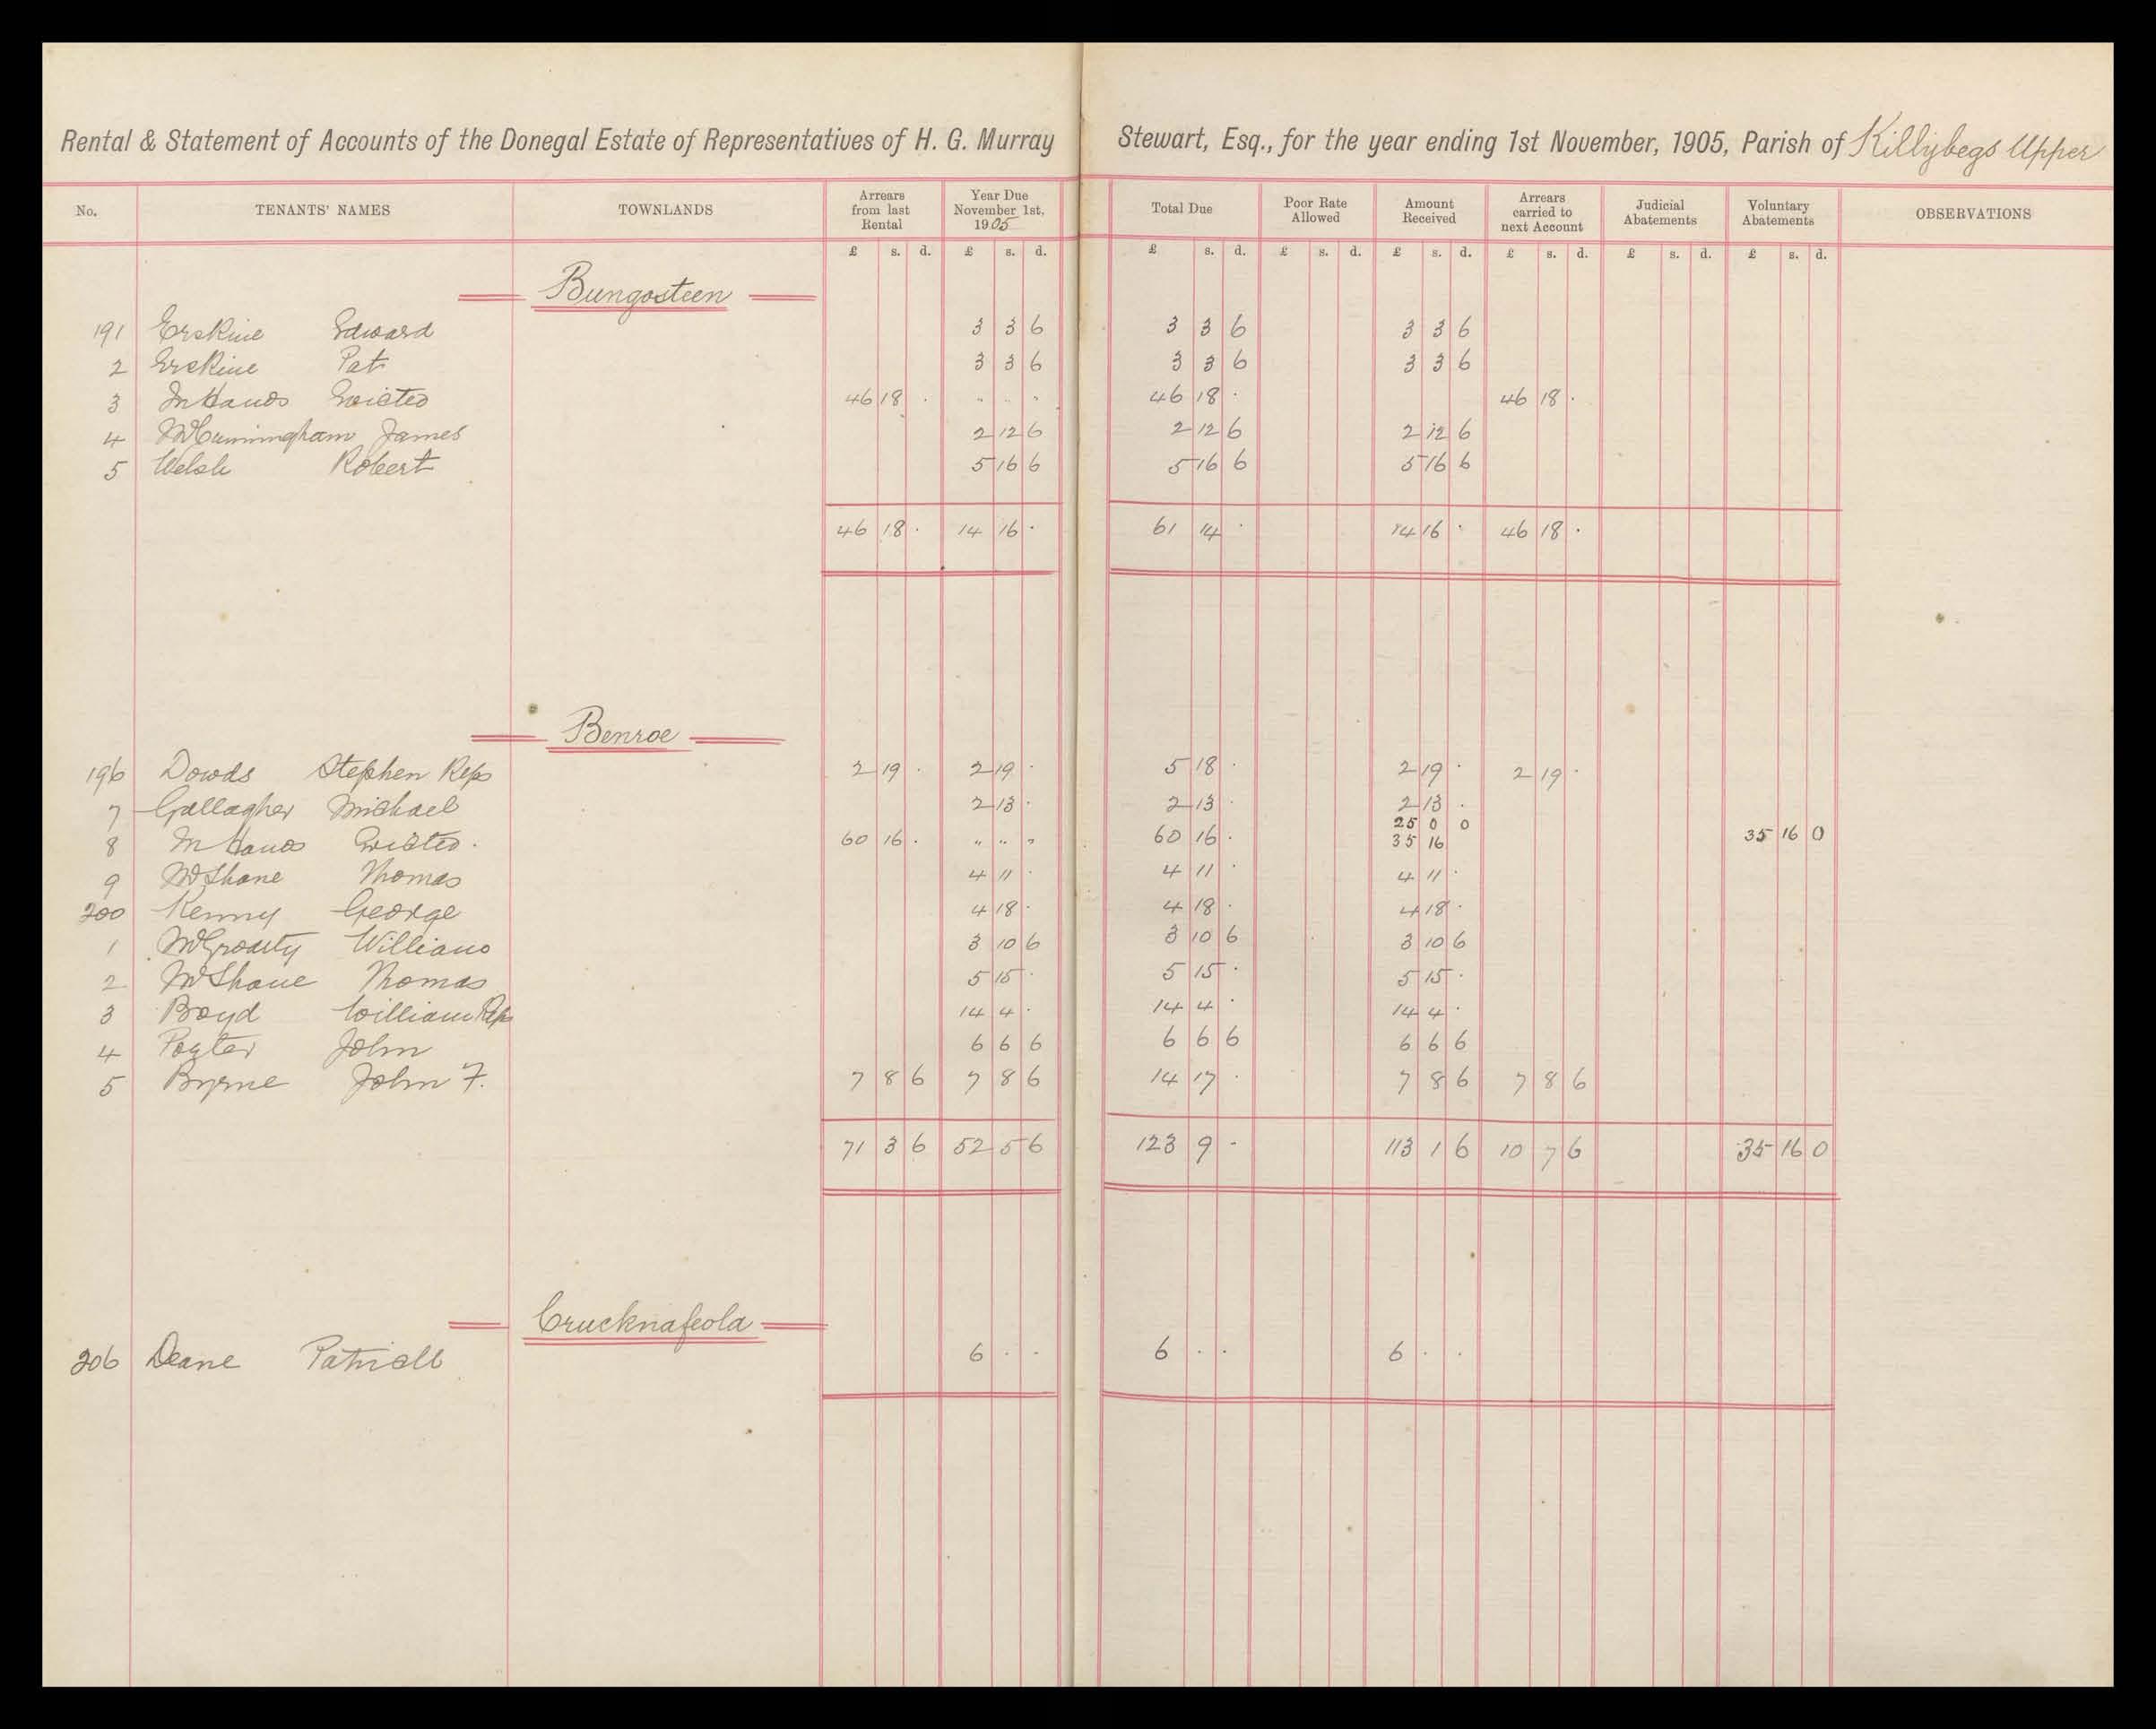 Rental & Statement of Accounts of the Donegal Estate of Representatives of H. G. Murray Stewart, Esq., for the year ending 1st November, 1905, Parish of Killybegs Upper
No. TENANTS' NAMES TOWNLANDS Arrears from last Rental Year Due November 1st, 1905 Total Due Poor Rate Allowed Amount Received Arrears carried to next Account Judicial Abatements Voluntary Abatements OBSERVATIONS
£ s. d. £ s. d. £ s. d. £ s. d. £ s. d. £ s. d. £ s. d. £ s. d.
Bungosteen
191 Erskine Edward 3 3 6 3 3 6 3 3 6
2 Erskine Pat 3 3 6 3 3 6 3 3 6
3 In Hands Evicted 46 18 . " " " 46 18 . 46 18 .
4 McCunningham James 2 12 6 2 12 6 2 12 6
5 Welsh Robert 5 16 6 5 16 6 5 16 6
46 18 . 14 16 . 61 14 . 14 16 . 46 18 .
Benroe
196 Dowds Stephen Reps 2 19 . 2 19 . 5 18 . 2 19 . 2 19 .
7 Gallagher Michael 2 13 . 2 13 . 2 13 .
25 0 0
8 In Hands Evicted . 60 16 . " " " 60 16 . 35 16 35 16 0
9 McShane Thomas 4 11 . 4 11 . 4 11 .
200 Kenny George 4 18 . 4 18 . 4 18 .
1 McGroarty William 3 10 6 3 10 6 3 10 6
2 McShane Thomas 5 15 . 5 15 . 5 15 .
3 Boyd William Reps 14 4 . 14 4 . 14 4 .
4 Porter John 6 6 6 6 6 6 6 6 6
5 Byrne John F. 7 8 6 7 8 6 14 17 . 7 8 6 7 8 6
71 3 6 52 5 6 123 9 - 113 1 6 10 7 6 35 16 0
Crucknafeola
206 Deane Patrick 6 . - 6 . . 6 . .